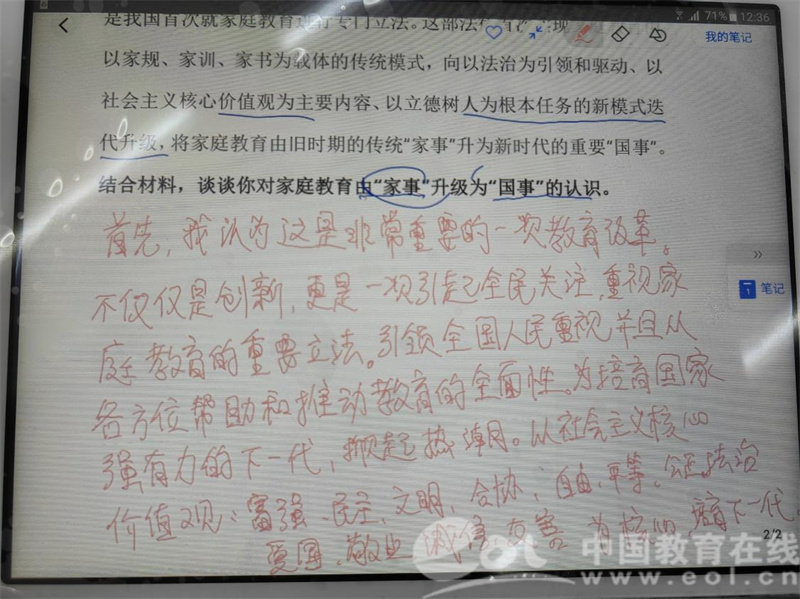 71% 12:36
是我国首次就家庭教育进行专门立法。这部法
我的笔记
以家规、家训、家书为载体的传统模式，向以法治为引领和驱动、以
社会主义核心价值观为主要内容、以立德树人为根本任务的新模式迭
代升级，将家庭教育由旧时期的传统“家事”升为新时代的重要“国事”。
结合材料，谈谈你对家庭教育由“家事”升级为“国事”的认识。
首先，我认为这是非常重要的一次教育改革。
不仅仅是创新，更是一次引起全民关注，重视家
笔记
庭教育的重要立法。引领全国人民重视并且从
各方位帮助和推动教育的全面性。为培育国家
强有力的下一代，掀起热潮。以社会主义核心
价值观：富强、民主、文明、合协、自由、平等、公正、法治
爱国、敬业、诚信、友善 为核心 下一代
2/2
eol 中国教育在线
www.eol.cn